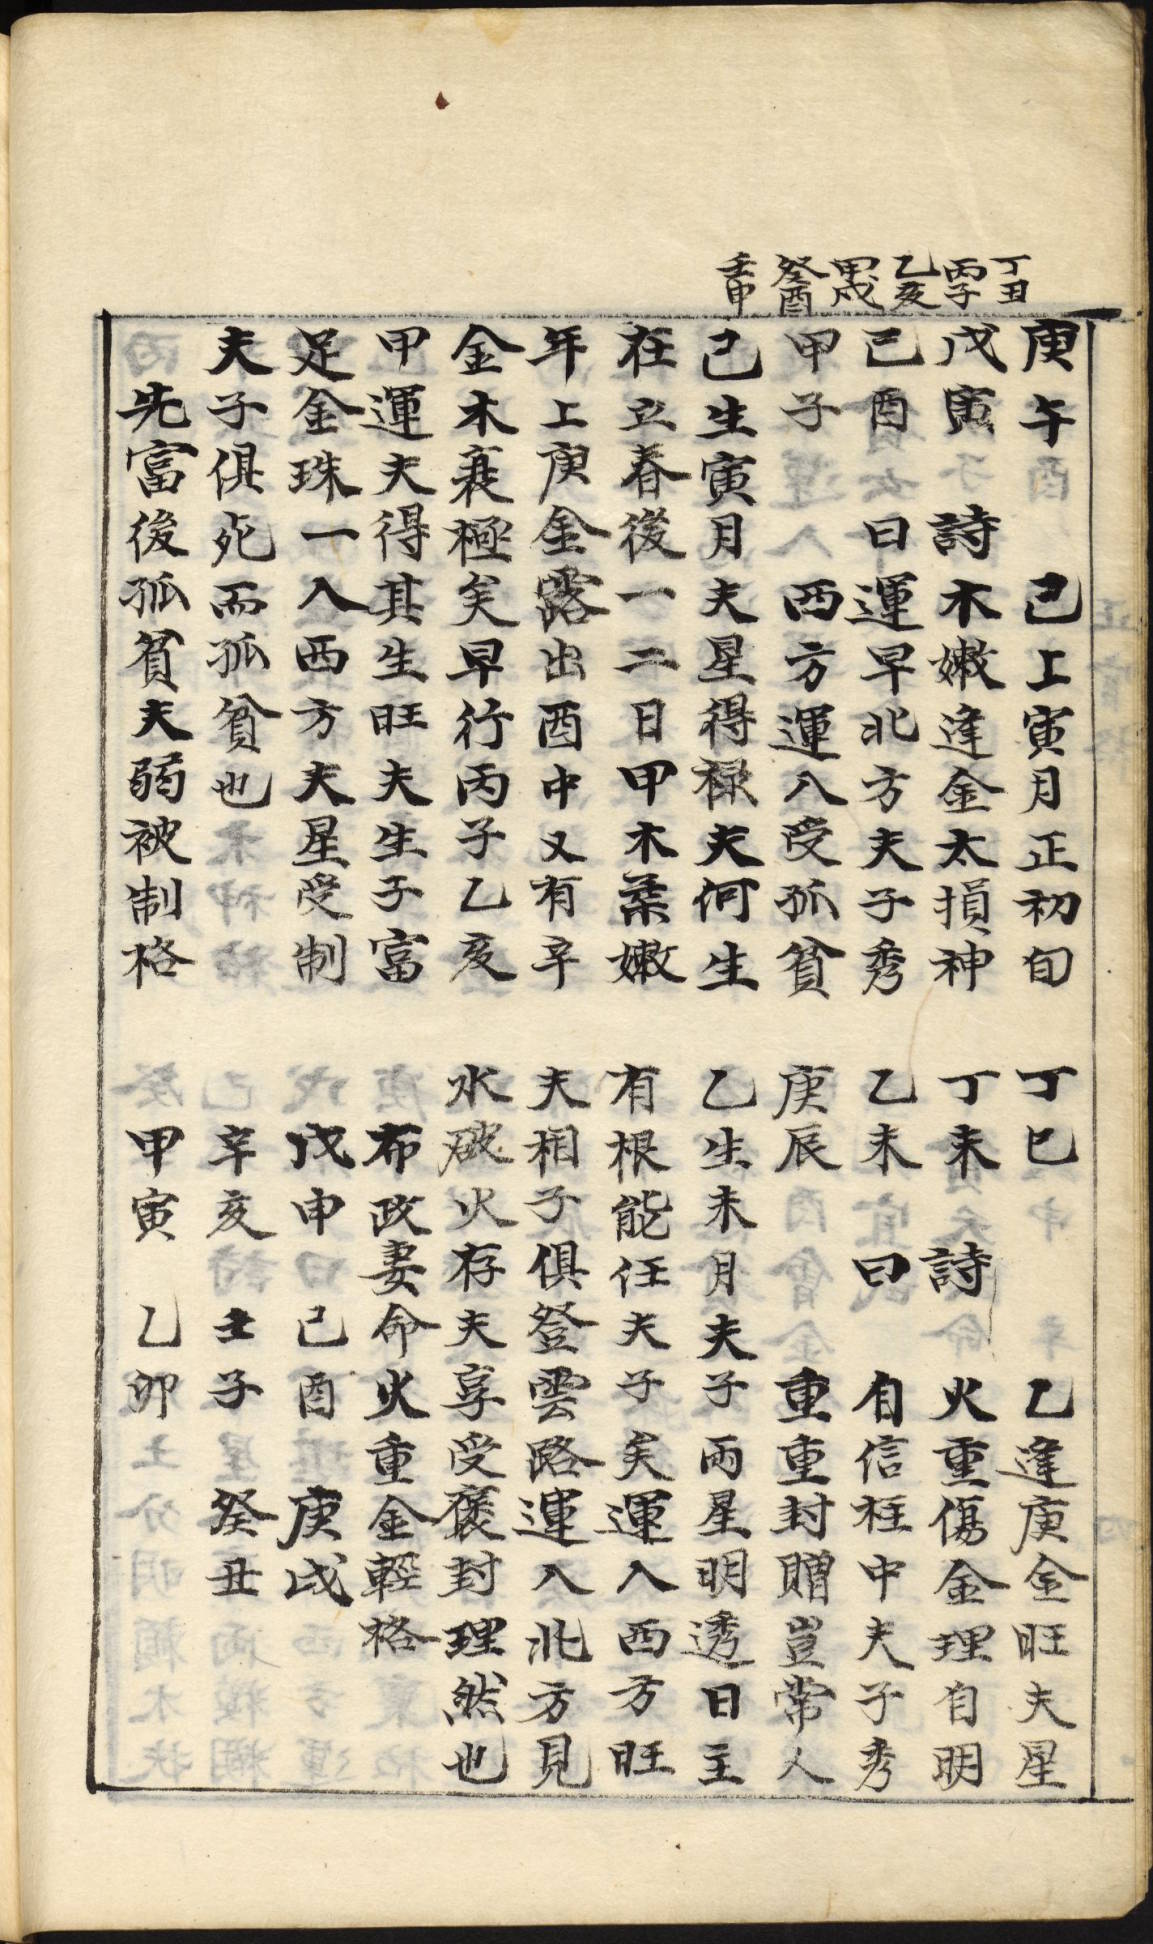 丁丑
丙子
乙亥
甲戌
癸酉
壬申
庚午　己上寅月正初旬
戊寅　詩　木嫩逢金太損神
己酉　曰　運早北方夫子秀
甲子　西方運入受孤貧
己生寅月夫星得禄夫何生
在立春後一二日甲木柔嫩
年上庚金露出酉中又有辛
金木衰極矣早行丙子乙亥
甲運夫得其生旺夫生子富
足金珠一入西方夫星受制
夫子俱死而孤貧也
先富後孤貧夫弱被制格
丁巳　乙逢庚金旺夫星
丁未　詩　火重傷金理自明
乙未　曰　自信柱中夫子秀
庚辰　重重封贈豈常人
乙生未月夫子兩星明透日主
有根能任夫子矣運入西方旺
夫相子俱登雲路運入北方見
水破火存夫享受褒封理然也
布政妻命火重金輕格
戊申　己酉　庚戌
辛亥　壬子　癸丑
甲寅　乙卯